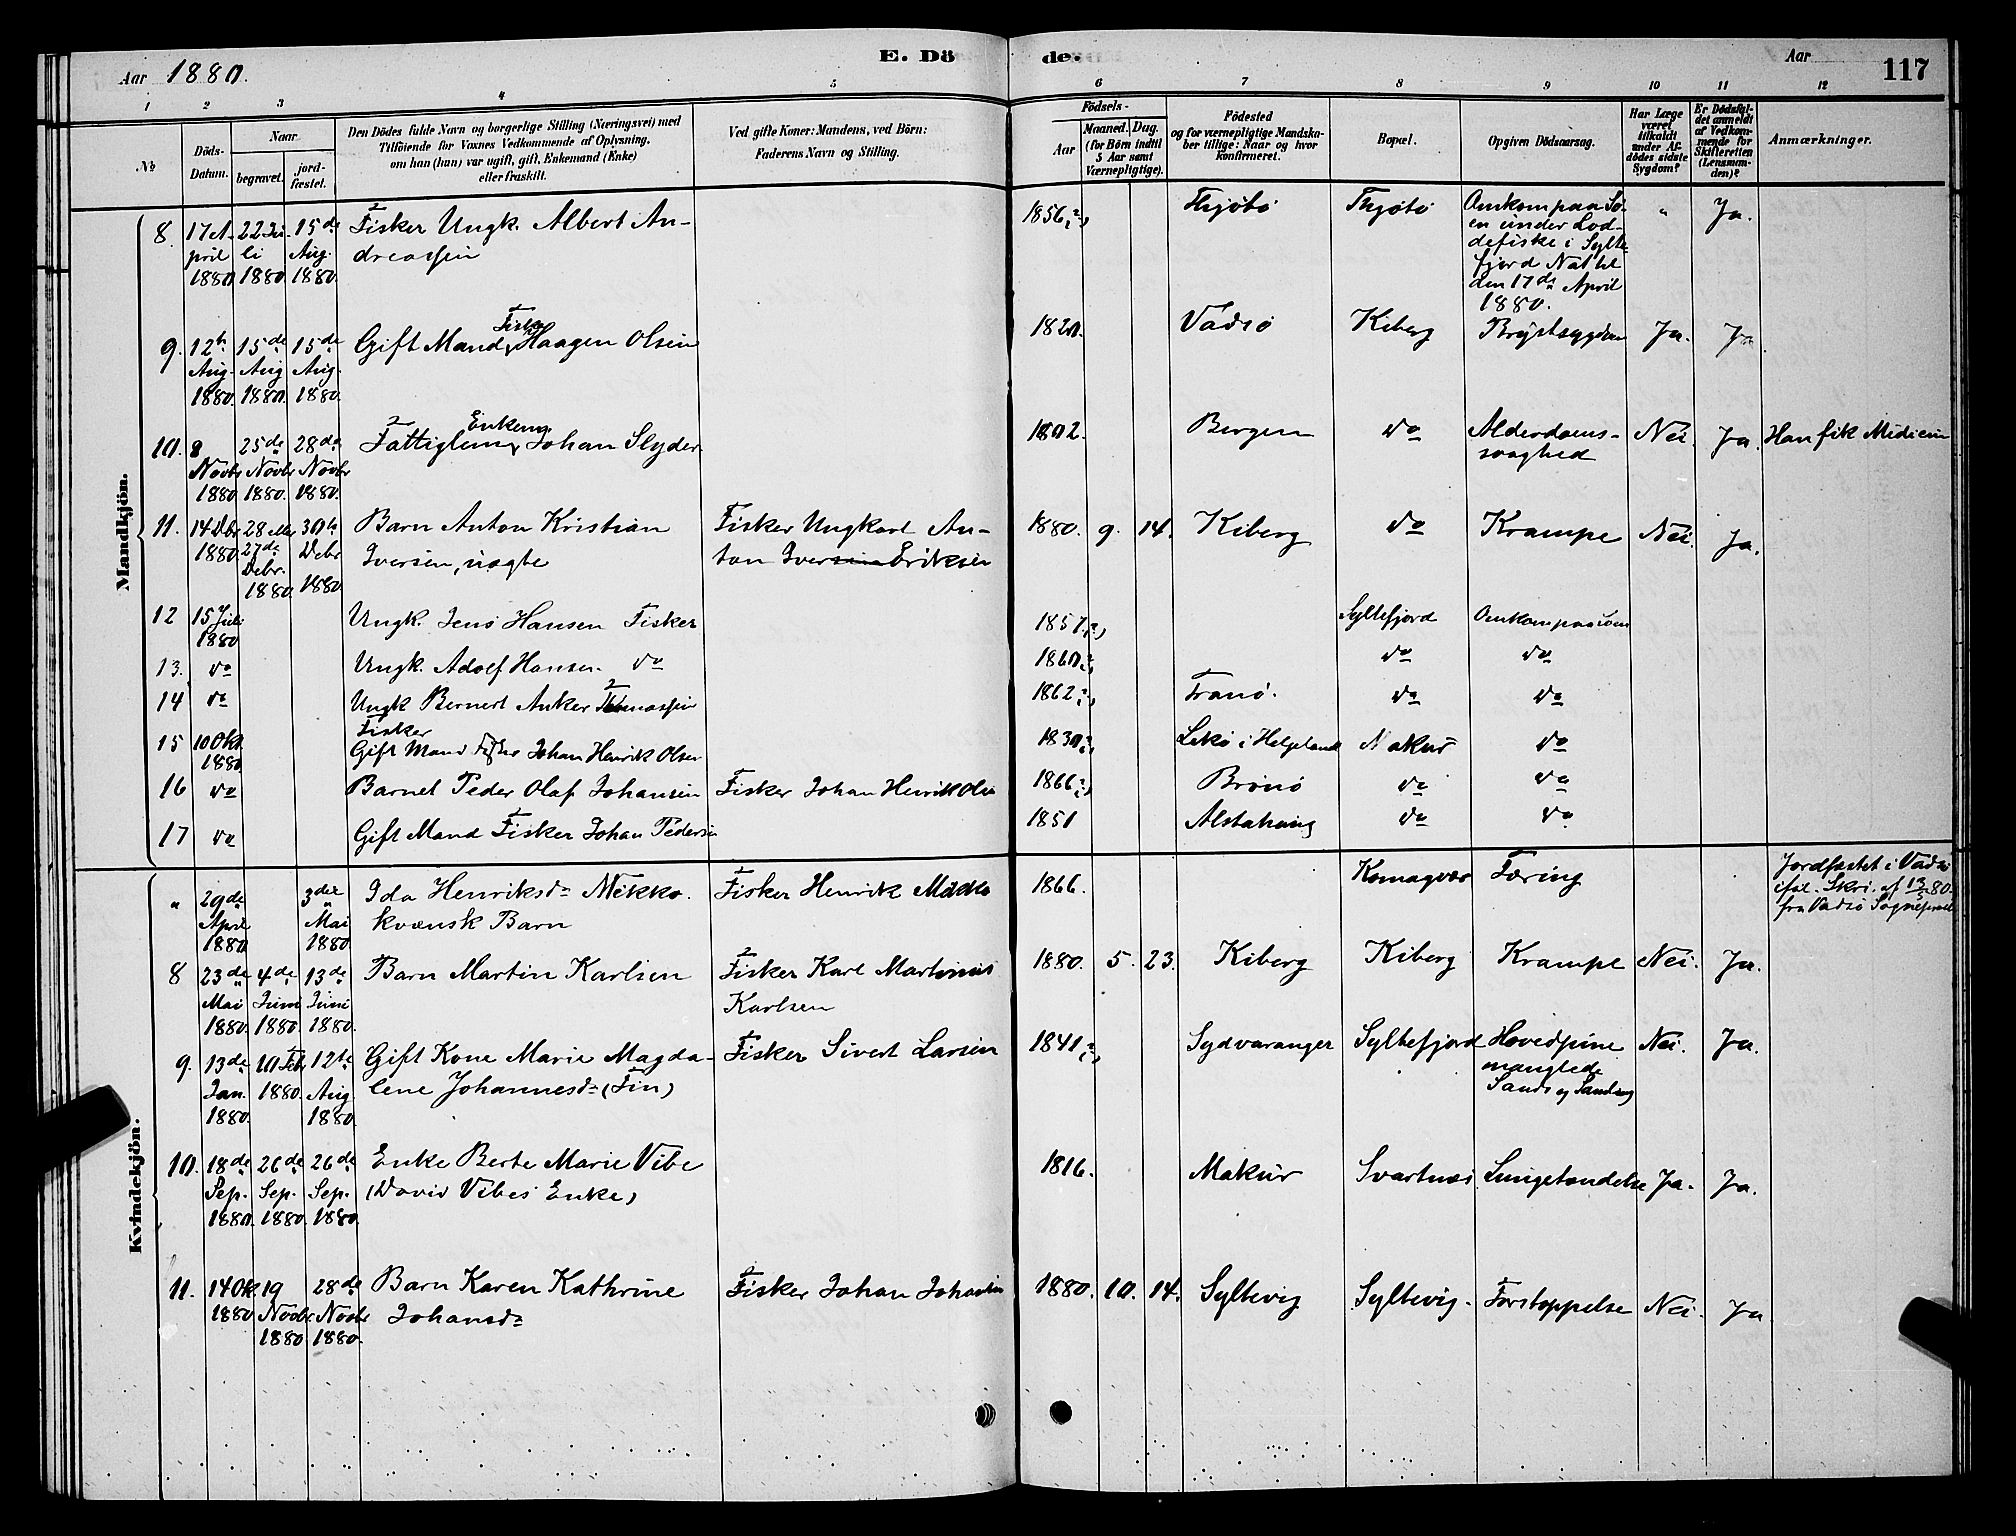 Aar 1880.
E. Dö de.
Aar
117
1 2 3 4 5 6 7 8 9 10 11 12
No
Döds-
Datum.
Naar
begravet.
jord-
fæstet.
Den Dödes fulde Navn og borgerlige Stilling (Næringsvei) med
Tilföiende for Voxnes Vedkommende af Oplysning,
om han (hun) var ugift, gift, Enkemand (Enke)
eller fraskilt.
Ved gifte Koner: Mandens, ved Börn:
Faderens Navn og Stilling.
Födsels-
Aar
Maaned. Dag.
(for Börn indtil
5 Aar samt
Værnepligtige).
Födested
og for værnepligtige Mandska-
ber tillige: Naar og hvor
konfirmeret.
Bopæl.
Opgiven Dödsaarsag.
Har Læge
været
tilkaldt
under Af-
dödes sidste
Sygdom?
Er Dödsfal-
det anmeldt
af Vedkom-
mende for
Skifteretten
(Lensman-
den)?
Anmærkninger.
Mandkjön.
8. 17 A- 22 Ju- 15de Fisker Ungk. Albert An- 1856(?) Thjøtø Thjøtø Omkom paa Sø- " Ja.
pril li Aug. dreassen en under Lod-
1880 1880. 1880. defiske i Sylte-
fjord Nat til
den 17de April
1880.
9. 12te 15de 15de Gift Mand, Fisker Haagen Olsen 1820. Vadsø Kiberg Brystsygdom Ja. Ja.
Aug. Aug Aug.
1880. 1880. 1880.
10. 8 25de 28de Fattiglem, Enkem. Johan Slyder 1802. Bergen do Alderdoms- Nei. Ja. Han fik Medicin
Novbr Novbr Novbr svaghed
1880 1880. 1880.
11. 14 Dbr 28 30te Barn Anton Kristian Fisker Ungkarl An- 1880. 9. 14. Kiberg do Krampe Nei. Ja.
1880 27de Debr Iversen, uægte ton Iversen Eriksen
Debr.
1880. 1880.
12 15 Juli Ungk. Jens Hansen Fisker 1857(?) Syltefjord Omkom paa Søen
1880
13. do Ungk. Adolf Hansen. do 1860(?) do do
14 do Ungk Bernert Anker Thomassen 1862(?) Tranø. do do
Fisker
15 10 Okt Gift Mand Fisker Johan Henrik Olsen 1830(?) Lekø i Helgeland Makur do
1880
16 do Barnet Peder Olaf Johansen Fisker Johan Henrik Olsen 1866(?) Brønø do do
17 do Gift Mand Fisker Johan Pedersen 1851 Alstahaug do do
Kvindekjön.
" 29de 3die Ida Henriksdr Mikko. Fisker Henrik Mikko 1866. Komagvær Tæring Jordfæstet i Vadsø
April Mai kvænsk Barn iføl. Skri. af 13/5 80.
1880 1880 fra Vadsø Sognepræst
8 23de 4de 13de Barn Martin Karlsen Fisker Karl Martinus 1880. 5. 23. Kiberg Kiberg Krampe Nei. Ja.
Mai Juni Juni Karlsen
1880. 1880. 1880.
9. 13de 10 Febr 12te Gift Kone Marie Magda- Fisker Sivert Larsen 1841(?) Sydvaranger Syltefjord Hovedpine Nei. Ja.
Jan. 1880. Aug lene Johannesdr (Fin) manglede
1880. 1880. Sands og Samling
10. 18de 26de 26de Enke Berte Marie Vibe 1816. Makur Svartnæs Lungetændelse Ja. Ja.
Sep. Sep. Sep. (David Vibes Enke)
1880. 1880. 1880.
11. 14 Ok. 19 28de Barn Karen Kathrine Fisker Johan Johansen 1880. 10. 14. Syltevig Syltevig. Forstoppelse Nei. Ja
1880 Novbr Novbr Johansdr
1880 1880.